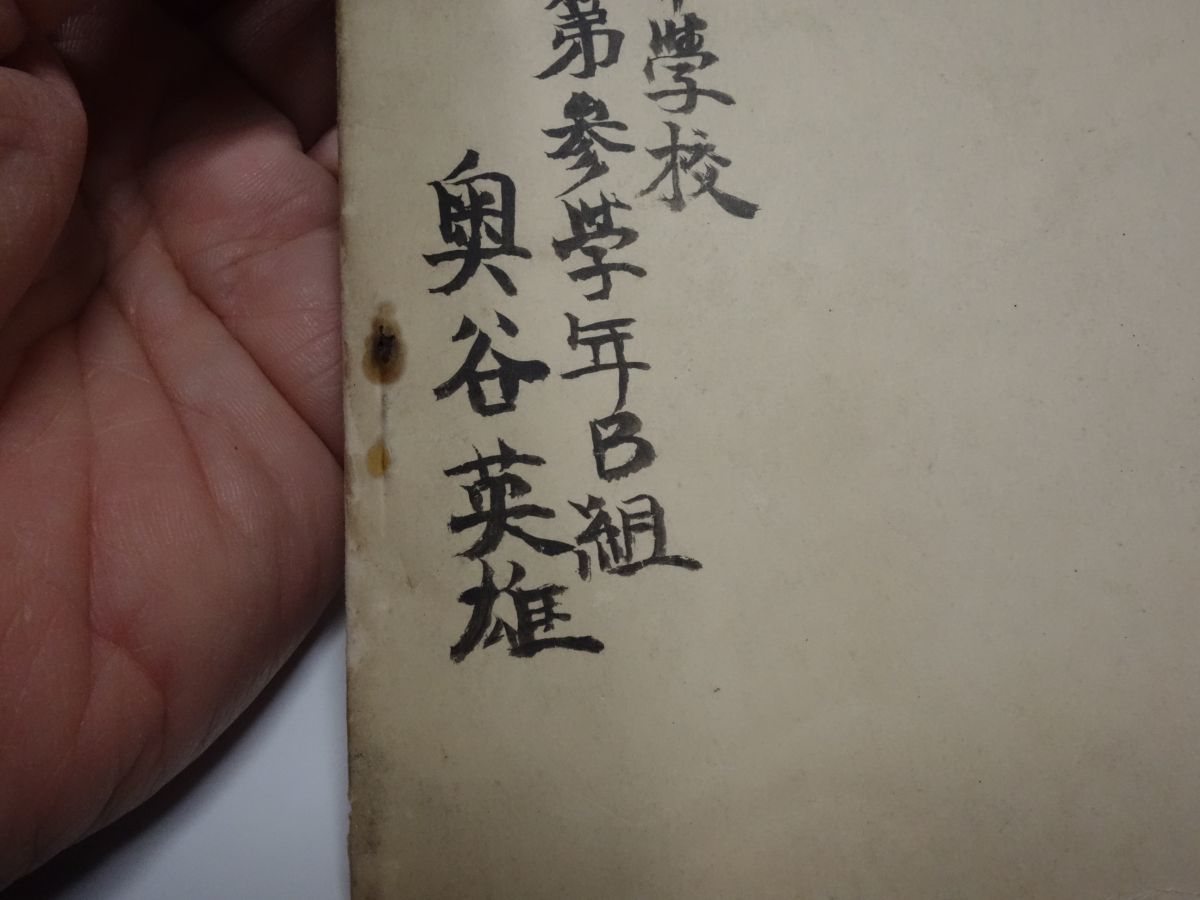 學校
第參學年B組
奥谷英雄